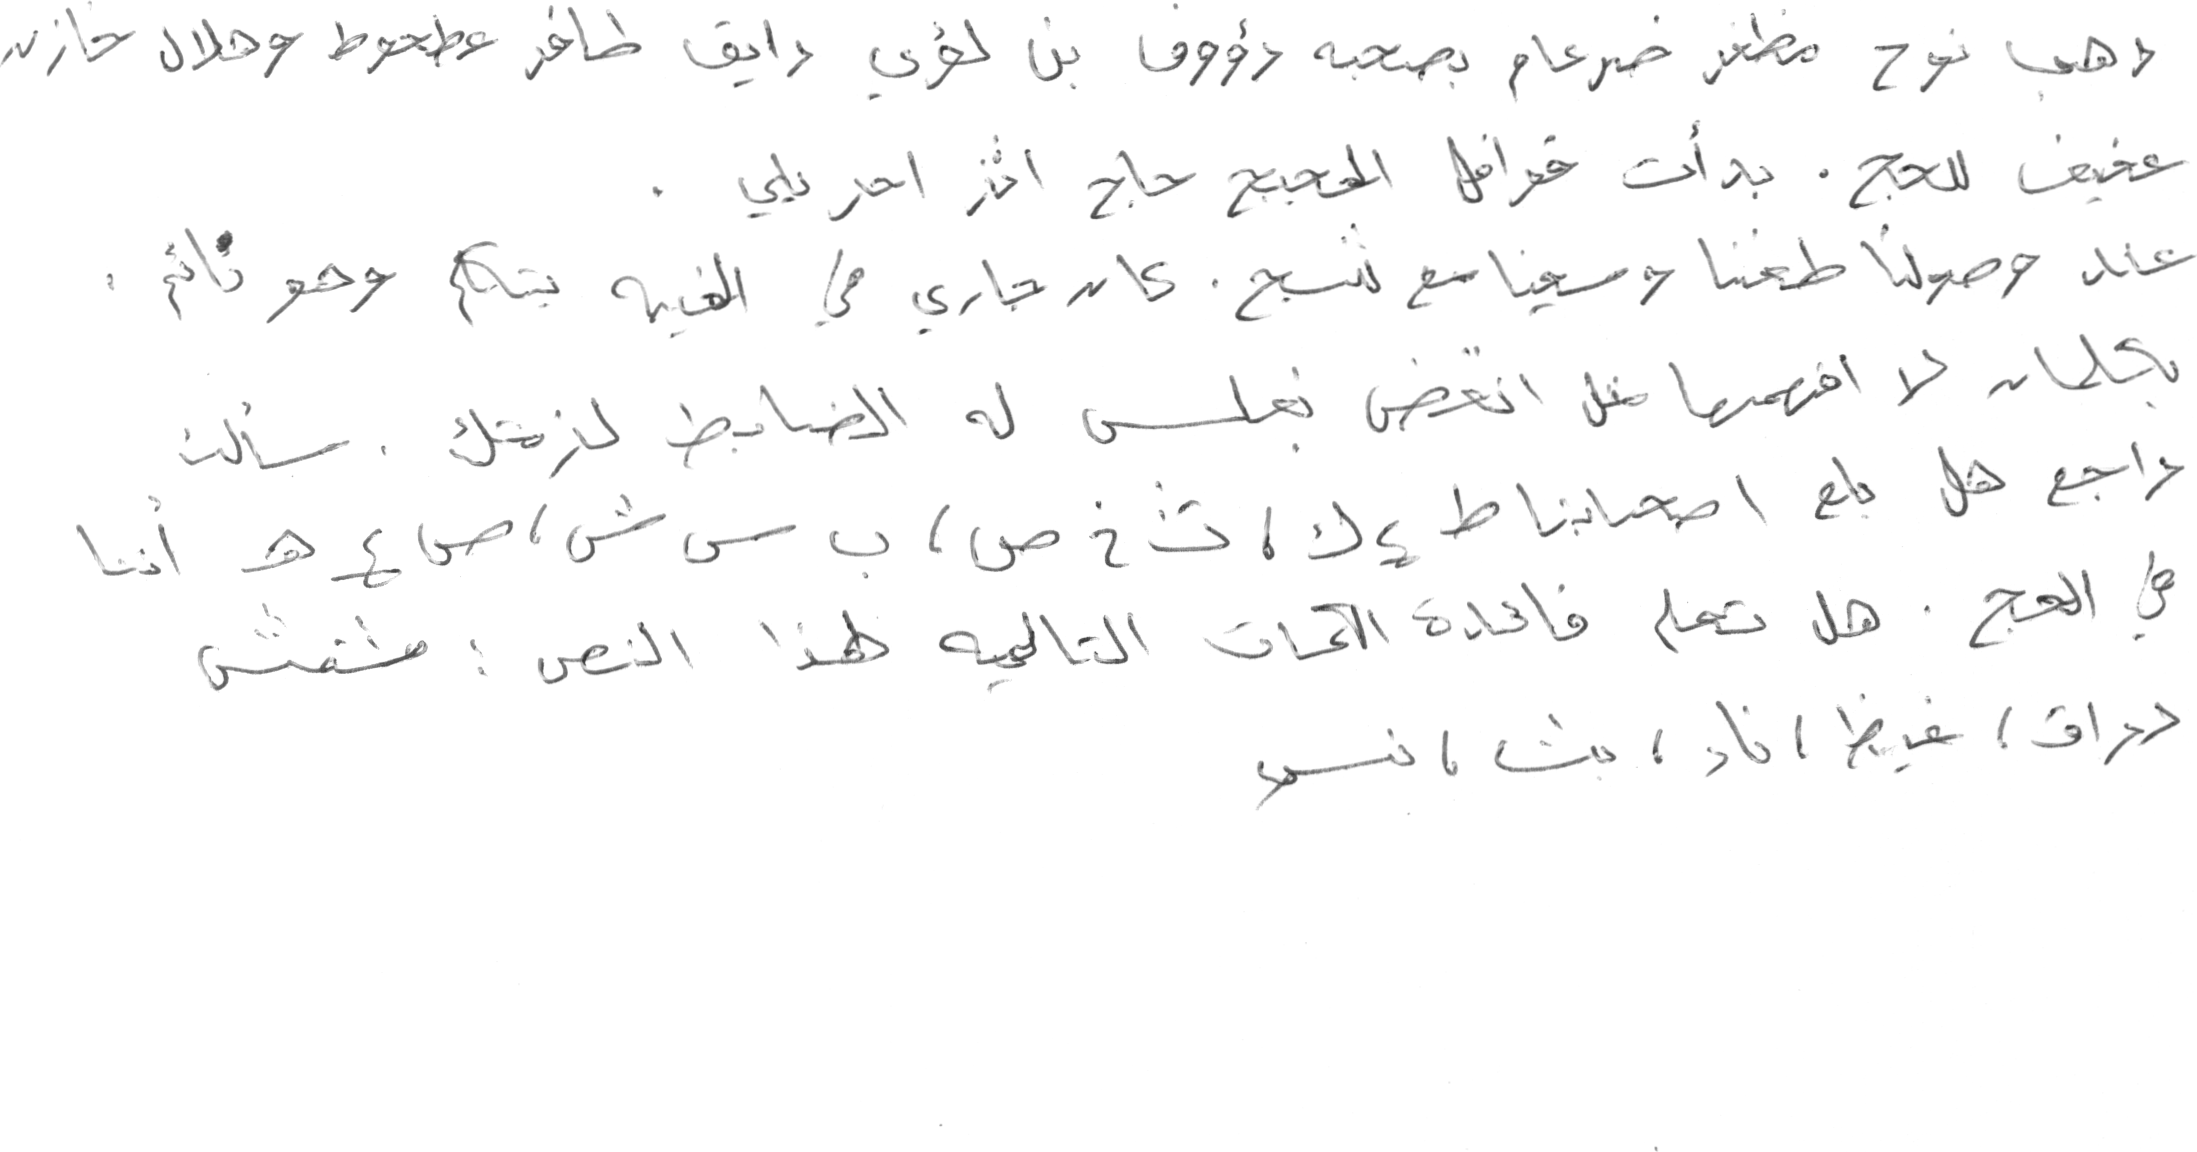 ذهب نوح مظفر ضرغام بصحبه رؤوف بن لؤي رايق ظافر عطعوط وهلال خازن
عفيف للحج . بدأت قوافل الحجيج حاج اثر اخر يلبي .
عند وصولنا طفنا وسعينا مع تسبيح . كان جاري في الخيمه يتكلم وهو نائم .
بكلمات لا افهمها مثل انقض بغلس له الضابط لزمتك . سألت
راجع هل بلغ اصحابنا ط ء ك ، ث خ ص ، ب س ش ، ص ع هـ أننا
في الحج . هل تعلم فائدة الكلمات التاليه لهذا النص : منقش
دراق ، غيظ ، ناد ، بث ، نسر